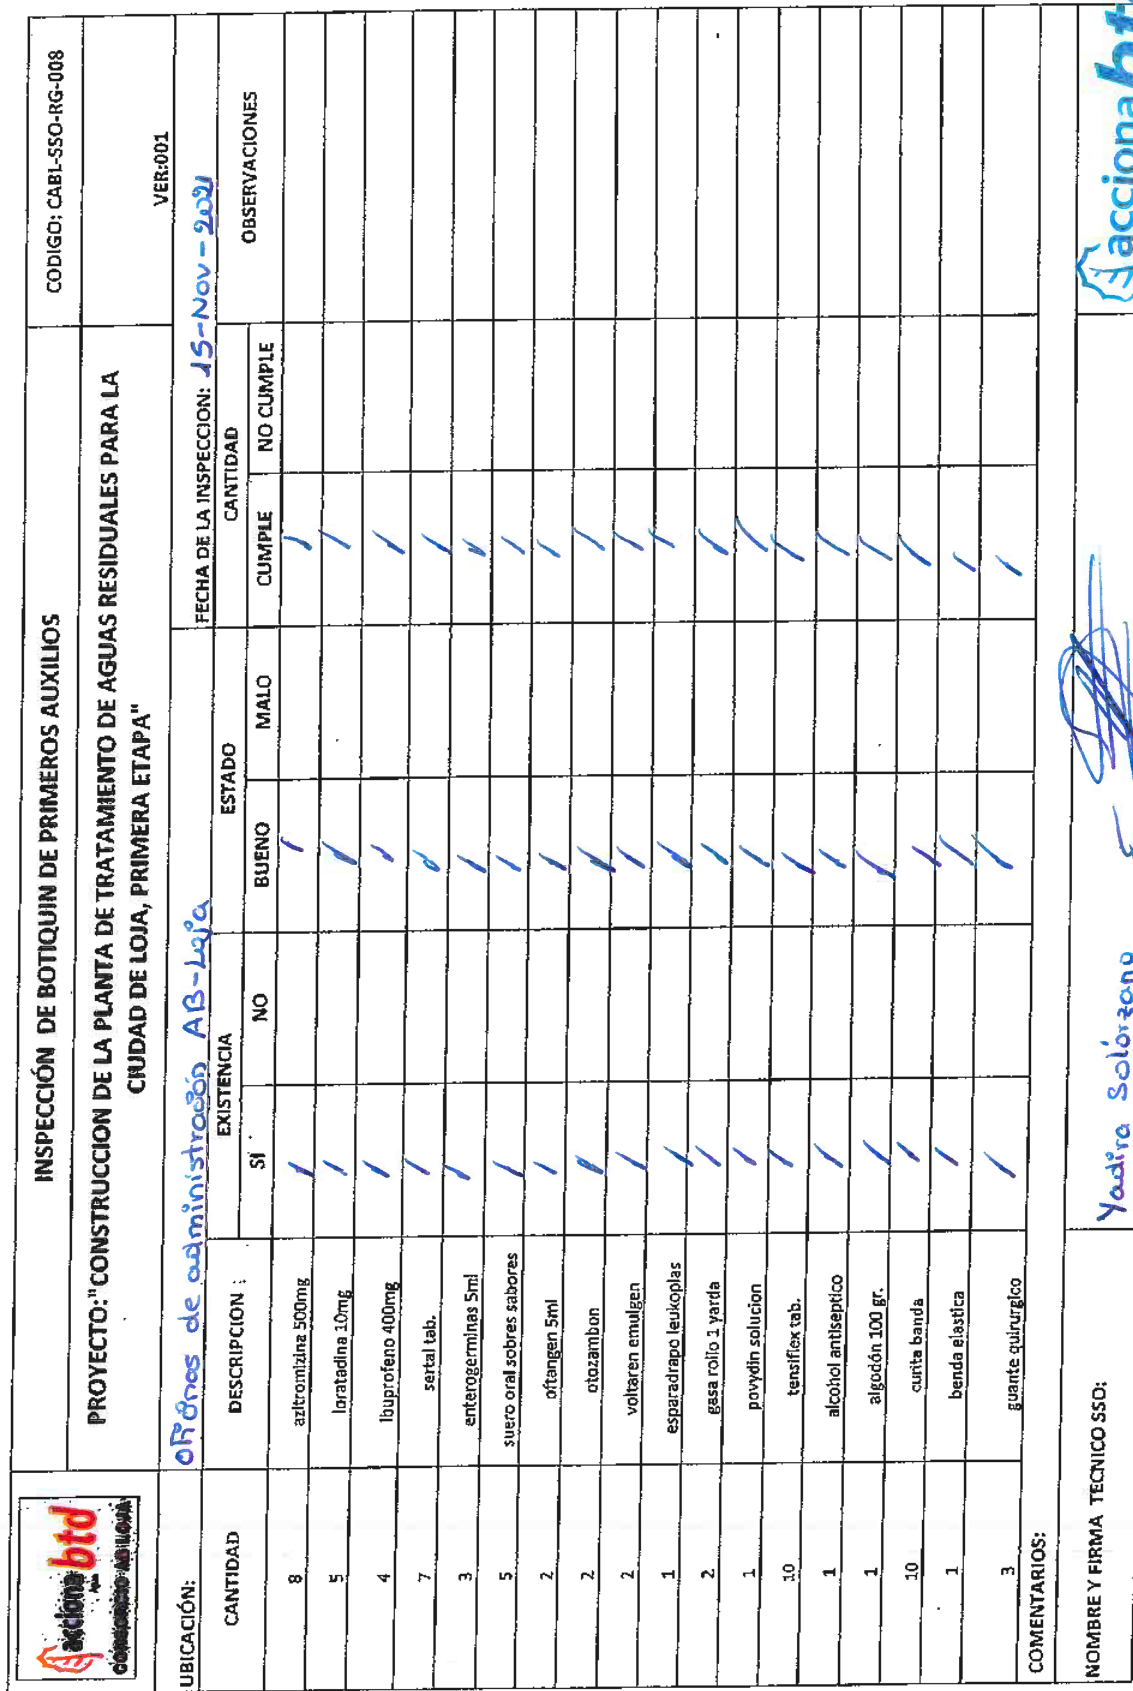 acciona btd
Agua
CONSORCIO AB LOJA
INSPECCIÓN DE BOTIQUIN DE PRIMEROS AUXILIOS
CODIGO: CABL-SSO-RG-008
PROYECTO:"CONSTRUCCION DE LA PLANTA DE TRATAMIENTO DE AGUAS RESIDUALES PARA LA
CIUDAD DE LOJA, PRIMERA ETAPA"
VER:001
UBICACIÓN: oficinas de administración AB-Loja FECHA DE LA INSPECCION: 15-Nov-2021
CANTIDAD DESCRIPCION : EXISTENCIA ESTADO CANTIDAD OBSERVACIONES
SI NO BUENO MALO CUMPLE NO CUMPLE
8 azitromizina 500mg / / /
5 loratadina 10mg / / /
4 Ibuprofeno 400mg / / /
7 sertal tab. / / /
3 enterogerminas 5ml / / /
5 suero oral sobres sabores / / /
2 oftangen 5ml / / /
2 otozambon / / /
2 voltaren emulgen / / /
1 esparadrapo leukoplas / / /
2 gasa rollo 1 yarda / / /
1 povydin solucion / / /
10 tensiflex tab. / / /
1 alcohol antiseptico / / /
1 algodón 100 gr. / / /
10 curita banda / / /
1 benda elastica / / /
3 guante quirurgico / / /
COMENTARIOS:
NOMBRE Y FIRMA TECNICO SSO: Yadira Solórzano
acciona btd